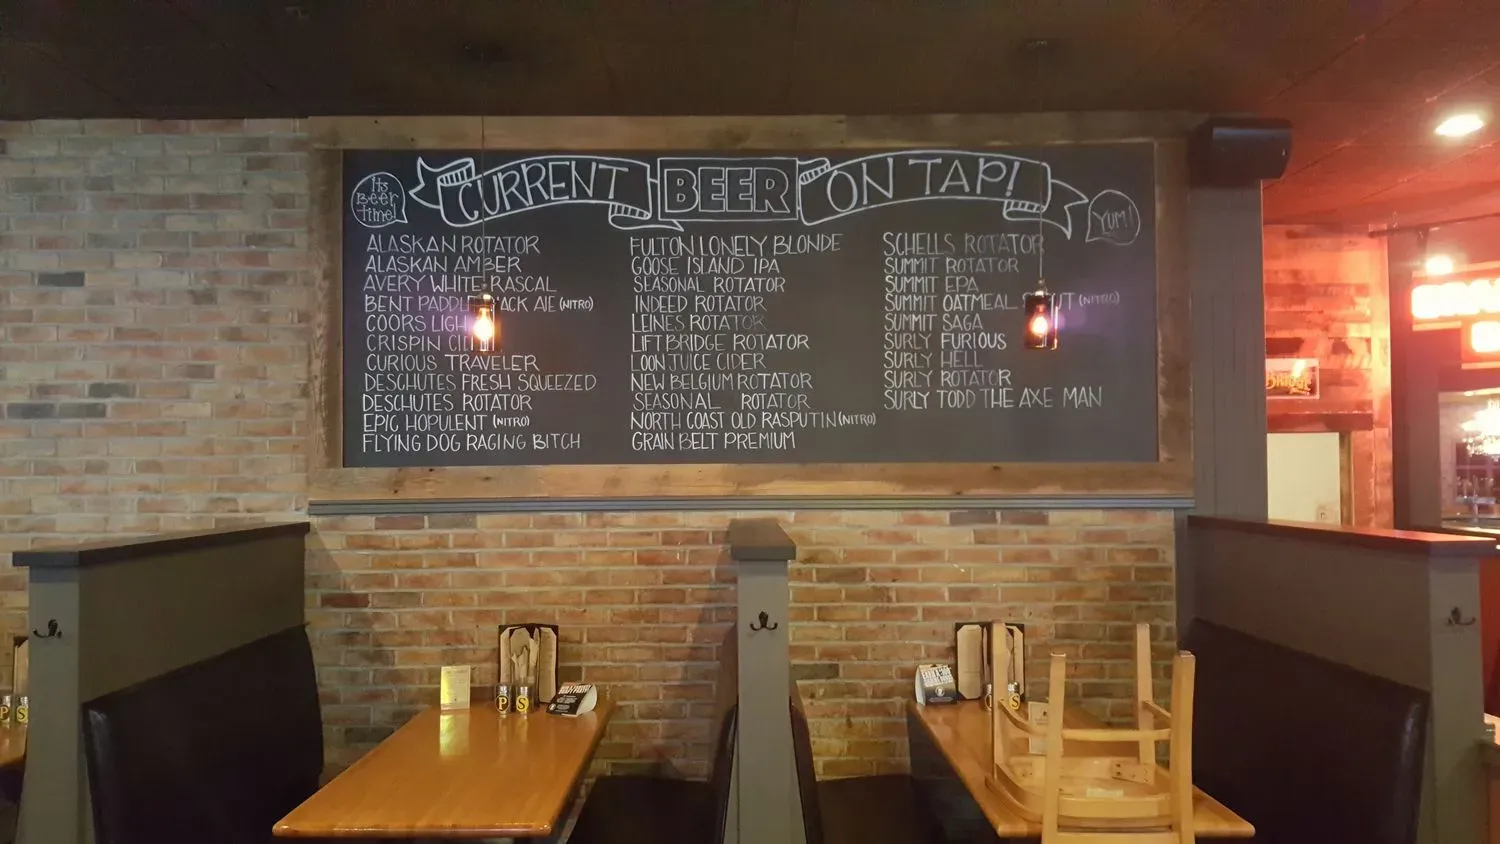 Its
Beer
time!
CURRENT BEER ON TAP!
YUM!
ALASKAN ROTATOR
ALASKAN AMBER
AVERY WHITE RASCAL
BENT PADDLE ALE (NITRO)
COORS
CRISPIN
CURIOUS TRAVELER
DESCHUTES FRESH SQUEEZED
DESCHUTES ROTATOR
EPIC HOPULENT (NITRO)
FLYING DOG RAGING BITCH
FULTON LONELY BLONDE
GOOSE ISLAND IPA
SEASONAL ROTATOR
INDEED ROTATOR
LEINES ROTATOR
LIFT BRIDGE ROTATOR
LOON JUICE CIDER
NEW BELGIUM ROTATOR
SEASONAL ROTATOR
NORTH COAST OLD RASPUTIN (NITRO)
GRAIN BELT PREMIUM
SCHELLS ROTATOR
SUMMIT ROTATOR
SUMMIT EPA
SUMMIT OATMEAL (NITRO)
SUMMIT SAGA
SURLY FURIOUS
SURLY HELL
SURLY ROTATOR
SURLY TODD THE AXE MAN
P S
P S